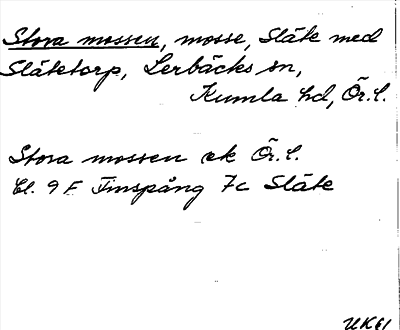 Stora mossen, mosse, Släte med
Slätetorp, Lerbäcks sn,
Kumla hd, Ör. l.
Stora mossen ek Ör. l.
Bl. 9 F Finspång 7c Släte
UK61